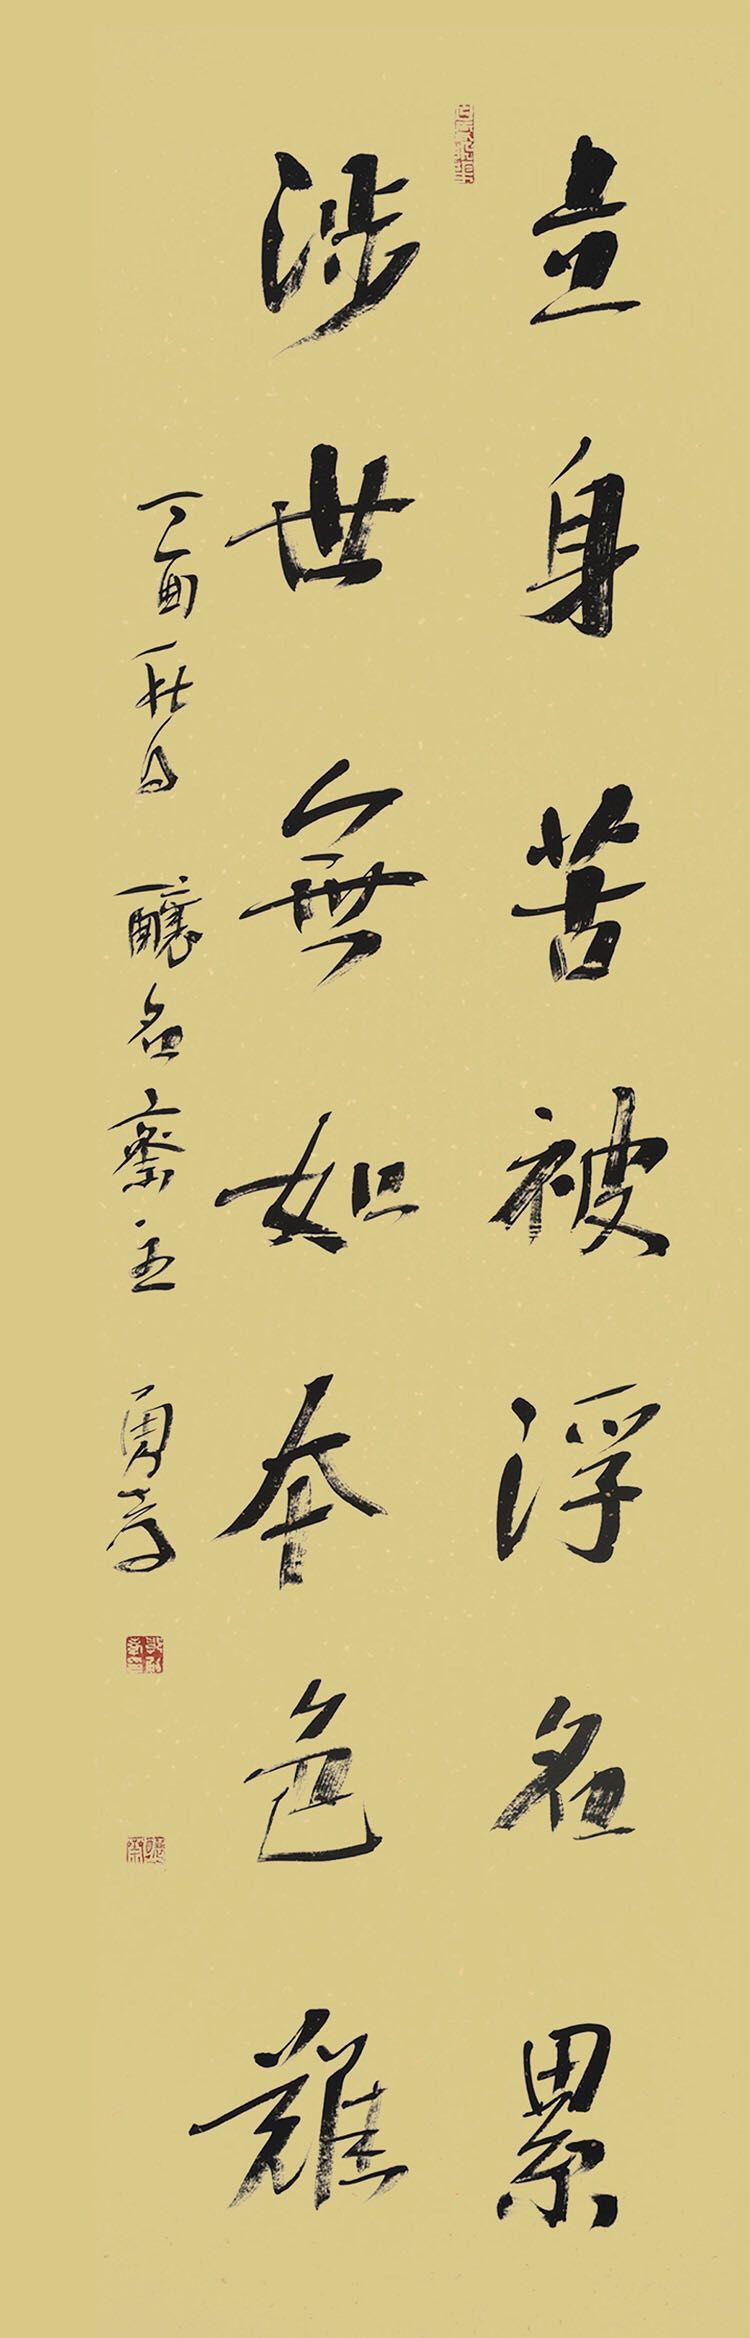 立身苦被浮名累
涉世無如本色難
丁酉秋月 釀名齋主 勇孝